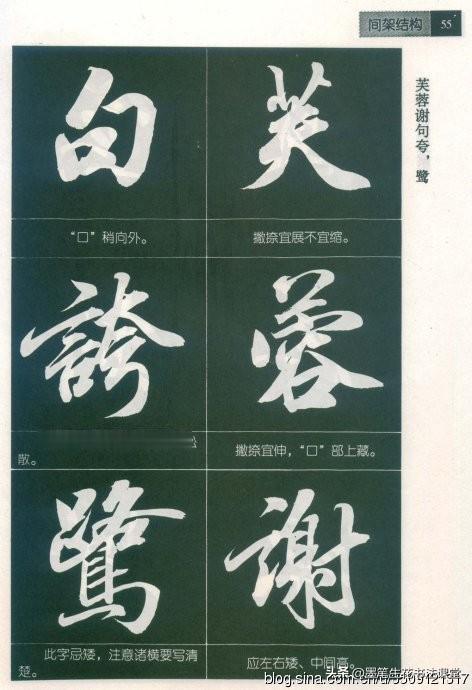 间架结构 55
芙蓉谢句夸，鹭
芙
撇捺宜展不宜缩。
蓉
撇捺宜伸，“口”部上藏。
謝
应左右矮、中间高。
句
“口”稍向外。
誇
散。
鷺
此字忌矮，注意诸横要写清
楚。
头条@墨笔生花书法课堂